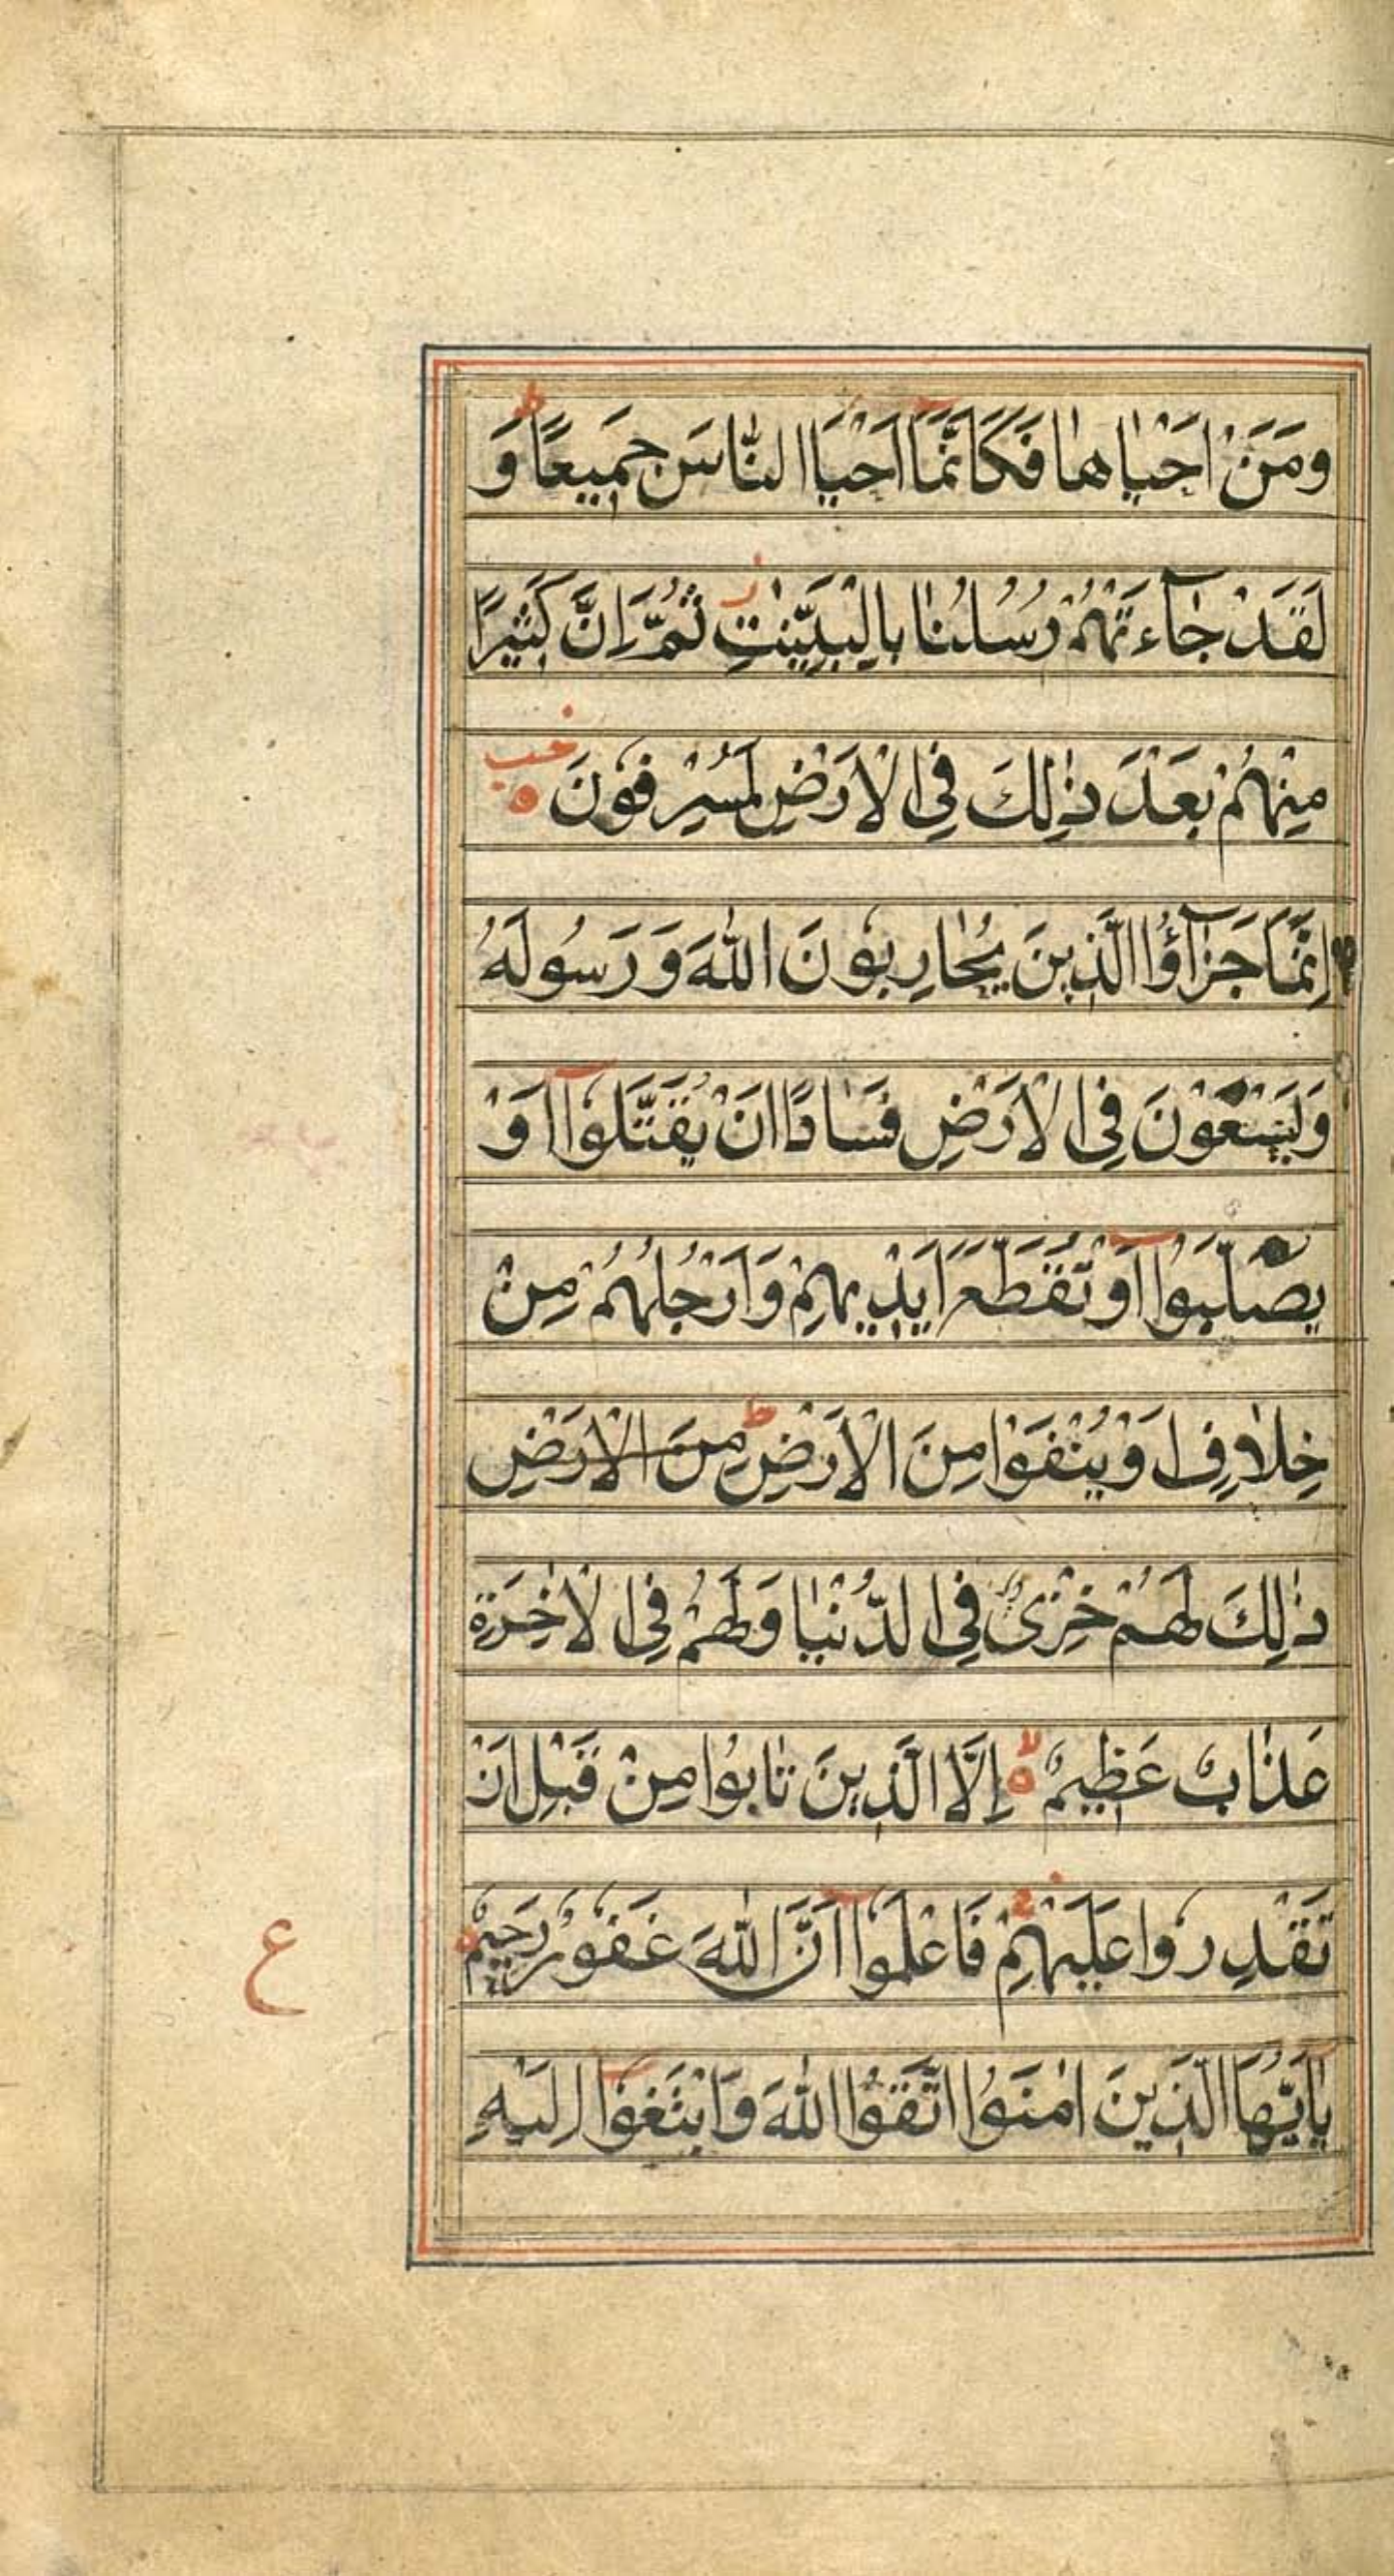 وَمَنْ اَحْيٰاهٰا فَكَاَنَّمَا اَحْيَا النّٰاسَ جَمِيعًا ط وَ
لَقَدْ جٰاءَتْهُمْ رُسُلُنٰا بِالْبَيِّنٰتِ ز ثُمَّ اِنَّ كَثِيْرًا
مِنْهُمْ بَعْدَ ذٰلِكَ فِى الْاَرْضِ لَمُسْرِفُوْنَ
اِنَّمٰا جَزٰٓاؤُا الَّذِينَ يُحٰارِبُوْنَ اللّٰهَ وَ رَسُولَهُ
وَيَسْعَوْنَ فِى الْاَرْضِ فَسٰادًا اَنْ يُقَتَّلُوْٓا اَوْ
يُصَلَّبُوْٓا اَوْ تُقَطَّعَ اَيْدِيهِمْ وَاَرْجُلُهُمْ مِنْ
خِلٰافٍ اَوْ يُنْفَوْا مِنَ الْاَرْضِ ط مِنَ الْاَرْضِ
ذٰلِكَ لَهُمْ خِزْىٌ فِى الدُّنْيٰا وَلَهُمْ فِى الْاٰخِرَةِ
عَذٰابٌ عَظِيمٌ لا اِلَّا الَّذِينَ تٰابُوْا مِنْ قَبْلِ اَنْ
تَقْدِرُوْا عَلَيْهِمْ ج فَاعْلَمُوْٓا اَنَّ اللّٰهَ غَفُوْرٌ رَحِيمٌ
ع
يٰٓاَيُّهَا الَّذِينَ اٰمَنُوْا اتَّقُوْا اللّٰهَ وَابْتَغُوْٓا اِلَيْهِ